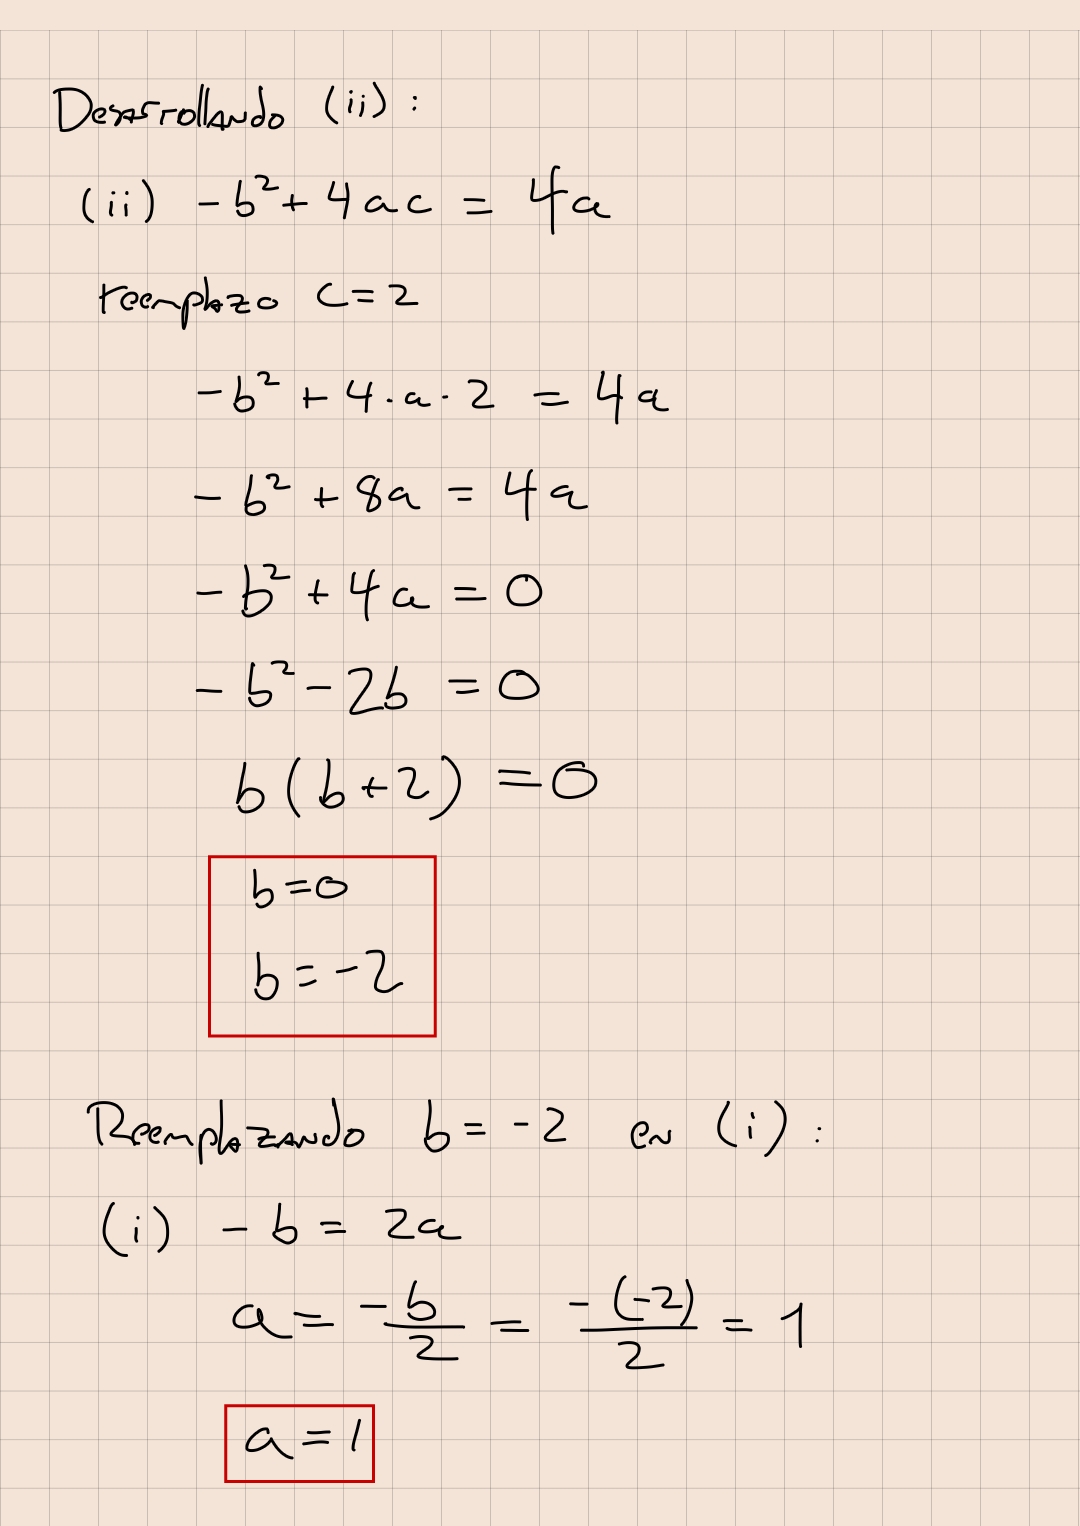 Desarrollando (ii) :
(ii) -b² + 4ac = 4a
reemplazo c = 2
-b² + 4·a·2 = 4a
-b² + 8a = 4a
-b² + 4a = 0
-b² - 2b = 0
b(b+2) = 0
b = 0
b = -2
Reemplazando b = -2 en (i) :
(i) -b = 2a
a = -b/2 = -(-2)/2 = 1
a = 1